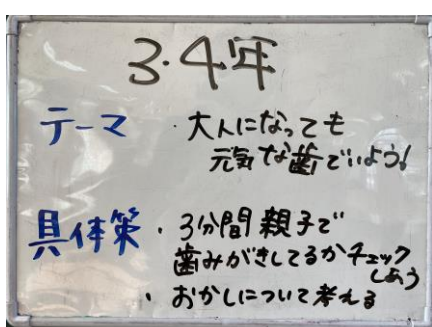 3・4年
テーマ ・大人になっても
元気な歯でいよう!
具体策 ・3分間親子で
歯みがきしてるかチェック
しあう
・おかしについて考える